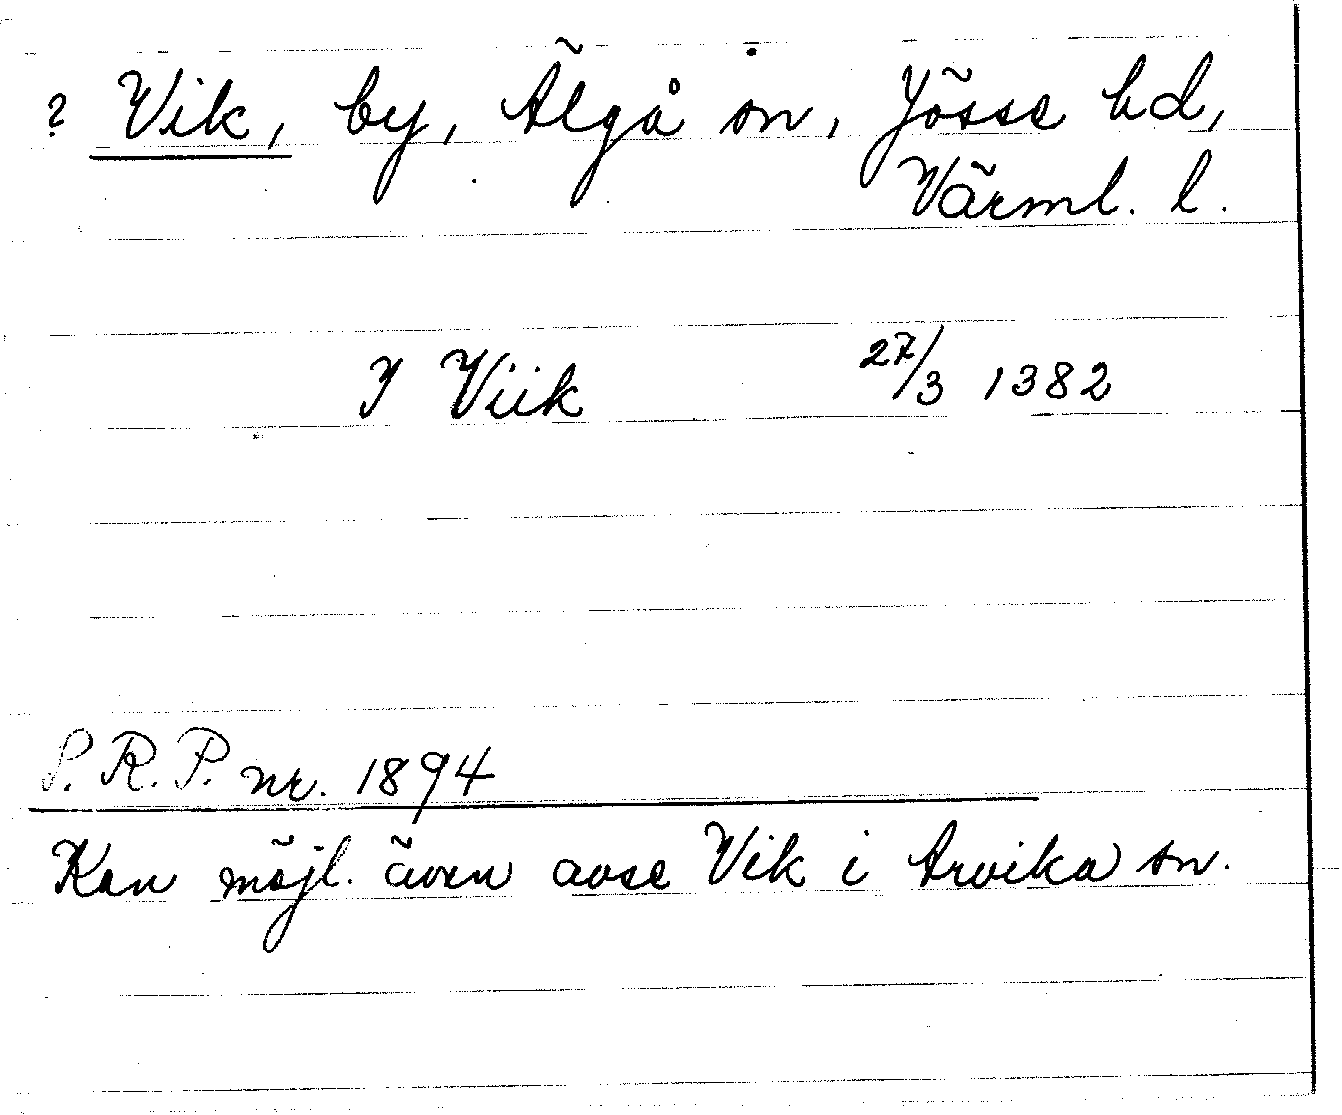 ? Vik, by, Älgå sn, Jösse hd,
Värml. l.
I Viik 27/3 1382
S.R.P. nr. 1894
Kan möjl. även avse Vik i Arvika sn.